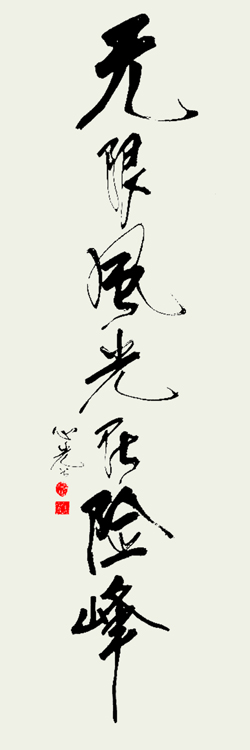 无限风光在险峰